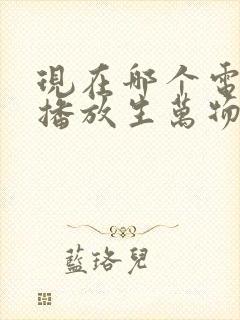 現在哪个電
播放生萬物
藍珞兒